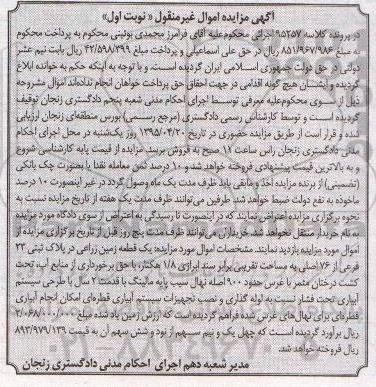 آگهی مزایده اموال غیرمنقول « نوبت اول»
در پرونده کلاسه ۹۵۲۵۷ اجرائی محکوم‌علیه آقای فرامرز مجمدی بوئینی محکوم به پرداخت محکوم
به مبلغ ۸۵۱/۹۶۷/۹۸۶ ریال در حق علی اسماعیلی و پرداخت مبلغ ۴۲/۵۹۸/۳۹۹ ریال بابت نیم عشر
دولتی در حق دولت جمهوری اسلامی ایران گردیده است، و با توجه به اینکه حکم به خوانده ابلاغ
گردیده و ایشان هیچ گونه اقدامی در جهت احقاق حق پرداخت خواهان انجام نداده‌اند اموال مشروحه
ذیل از سوی محکوم‌علیه معرفی توسط اجرای احکام مدنی شعبه پنجم دادگستری زنجان توقیف
گردیده است و توسط کارشناس رسمی دادگستری (مرجع رسمی) بورس منطقه‌ای زنجان ارزیابی
شده و قرار است از طریق مزایده حضوری در تاریخ ۱۳۹۵/۰۴/۲۰ روز یک‌شنبه در محل اجرای احکام
مدنی دادگستری زنجان راس ساعت ۱۱ صبح به فروش برسد. مزایده از قیمت پایه کارشناسی شروع
و به بالاترین قیمت پیشنهادی فروخته خواهد شد و ۱۰ درصد ثمن معامله نقدا یا بصورت چک بانکی
(تضمینی) از برنده مزایده اخذ و مابقی باید ظرف مدت یک ماه وصول گردد در غیر اینصورت ۱۰ درصد
ماخوذه به نفع دولت ضبط خواهد شد. طرفین می‌توانند ظرف مدت یک هفته از تاریخ مزایده نسبت به
نحوه برگزاری مزایده اعتراض نمایند که در اینصورت تا رسیدگی به اعتراض از سوی دادگاه مورد مزایده
به نام خریدار منتقل نخواهد شد. خریداران می‌توانند ظرف مدت پنج روز قبل از تاریخ برگزاری مزایده از
اموال مورد مزایده بازدید نمایند. مشخصات اموال مورد مزایده: یک قطعه زمین زراعی در پلاک ثبتی ۳۳
فرعی از ۷۶ اصلی به مساحت تقریبی برابر سند ابرازی ۱/۸ هکتار، با حق برخورداری از منابع آب، تحت
کشت درختان مثمر با غرس حدود ۹۰۰ اصله نهال سیب پایه مالینگ با قدمت ۲ سال با طرحی سیستم
آبیاری تحت فشار نسبت به لوله گذاری و نصب تجهیزات سیستم آبیاری قطره‌ای امکان انجام آبیاری
قطره‌ای برای نهال‌های غرس شده فراهم گردیده است که ارزش زمین یاد شده مبلغ ۲/۰۶۸/۰۰۰/۰۰۰
ریال برآورد گردیده است که چهل یک و نیم سهم از نود و شش سهم آن به قیمت ۸۹۳/۹۷۹/۱۳۹
ریال فروخته خواهد شد.
مدیر شعبه دهم اجرای احکام مدنی دادگستری زنجان